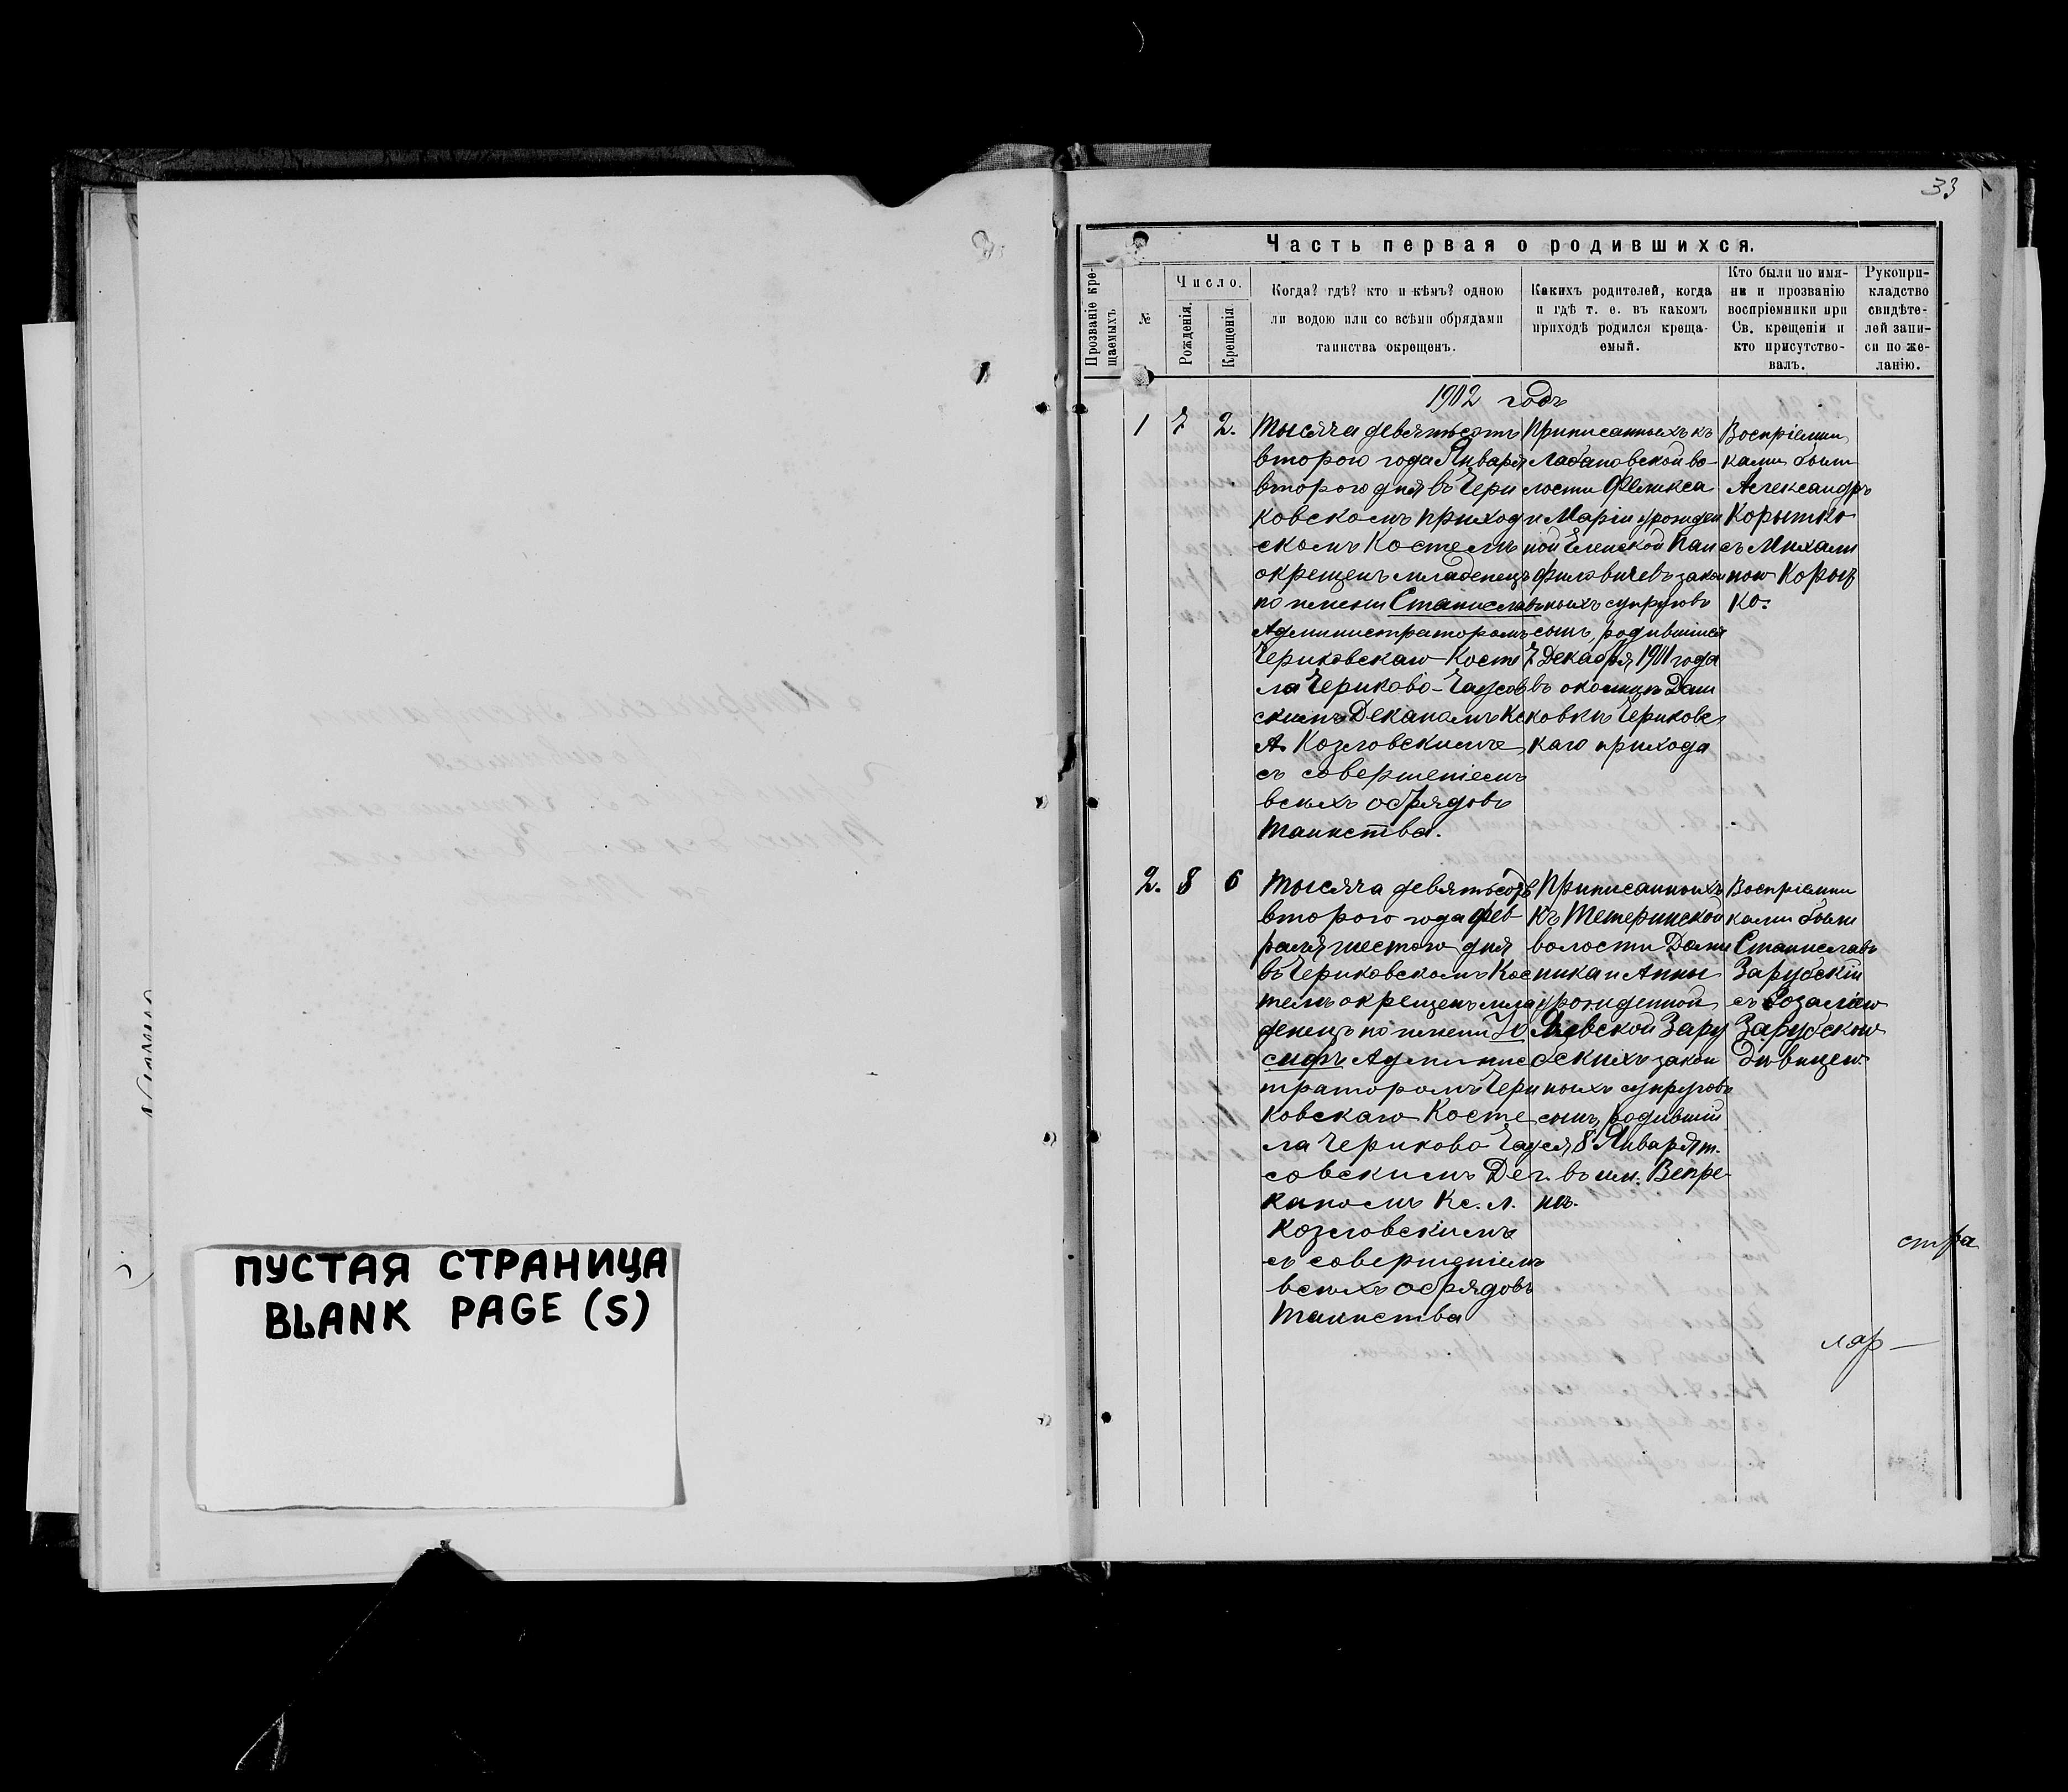 33
Часть первая о родившихся.
Прозваніе кре-
щаемыхъ
№
Число.
Рожденія.
Крещенія.
Когда? гдѣ? кто и кѣмъ? одною
ли водою или со всѣми обрядами
таинства окрещенъ.
Какихъ родителей, когда
и гдѣ т. е. въ какомъ
приходѣ родился креща-
емый.
Кто были по имя-
ни и прозванію
воспріемники при
Св. крещеніи и
кто присутство-
валъ.
Рукопри-
кладство
свидѣте-
лей запи-
си по же-
ланію.
1902 годъ
1
7
2.
Тысяча девятьсотъ
втораго года Января
втораго дня въ Чери
ковскомъ приход
скомъ Костелѣ
окрещенъ младенецъ
по имени Станиславъ
Администраторомъ
Чериковскаго Косте
ла Чериково-Чаусов
скимъ Деканомъ Кс
А. Козловскимъ
съ совершеніемъ
всѣхъ обрядовъ
Таинства.
Приписанныхъ къ
Лобановской во-
лости Феликса
и Маріи урожден
ной Еленской Пан
филовичевъ закон
ныхъ супруговъ
сынъ, родившійся
7 Декабря 1901 года
въ околицѣ Даш
ковкѣ Чериковс
каго прихода
Воспріемни
ками были
Александръ
Корытко
съ Михали
ною Корыт
ко.
2.
8
6
Тысяча девятьсотъ
втораго года Фев
раля шестого дня
въ Чериковскомъ Кос
телѣ окрещенъ мла
денецъ по имени Іо
сифъ Админис
траторомъ Чери
ковскаго Косте
ла Чериково Чау
совскимъ Де
каномъ Кс. А.
Козловскимъ
съ совершеніемъ
всѣхъ обрядовъ
Таинства
Приписанныхъ
къ Тетеринской
волости Доми
ника и Анны
урожденной
Яцевской Зару
бскихъ закон
ныхъ супруговъ
сынъ, родивший
ся 8 Января т.
г. въ им. Вепре-
нѣ.
Воспріемни
ками были
Станиславъ
Зарубскій
съ Розаліею
Зарубскою
дѣвицею.
стра
лар—
ПУСТАЯ СТРАНИЦА
BLANK PAGE (S)